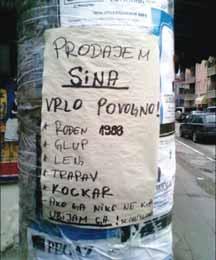 PRODAJEM
SINA
VRLO POVOLJNO!
* ROĐEN 1988
* GLUP
* LENJ
* TRAPAV
* KOCKAR
- AKO GA NIKO NE KUPI
UBIJAM GA!
PEGAZ